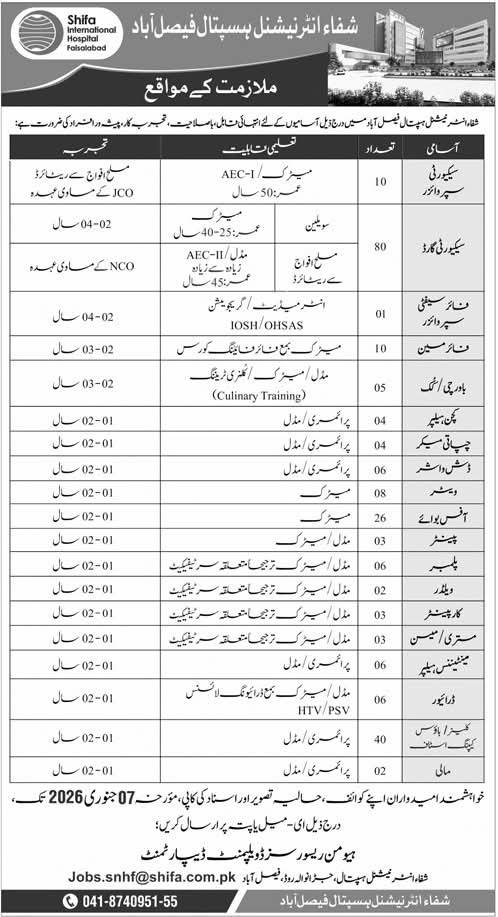 Shifa
International
Hospital
Faisalabad
شفاء انٹرنیشنل ہسپتال فیصل آباد
ملازمت کے مواقع
شفاء انٹرنیشنل ہسپتال فیصل آباد میں درج ذیل آسامیوں کے لئے انتہائی قابل، باصلاحیت، تجربہ کار، پیشہ ور افراد کی ضرورت ہے:
آسامی تعداد تعلیمی قابلیت تجربہ
سیکیورٹی سپروائزر 10 میٹرک/AEC-I عمر:50 سال مسلح افواج سے ریٹائرڈ JCO کے مساوی عہدہ
سیکیورٹی گارڈ 80 سویلین میٹرک عمر:25-40 سال 02-04 سال
مسلح افواج سے ریٹائرڈ مڈل/AEC-II زیادہ سے زیادہ عمر:45 سال NCO کے مساوی عہدہ
فائر سیفٹی سپروائزر 01 انٹرمیڈیٹ/گریجویشن IOSH/OHSAS 02-04 سال
فائر مین 10 میٹرک بمع فائر فائٹنگ کورس 02-03 سال
باورچی/کک 05 مڈل/میٹرک/کلنری ٹریننگ (Culinary Training) 02-03 سال
کچن ہیلپر 04 پرائمری/مڈل 01-02 سال
چپاتی میکر 04 پرائمری/مڈل 01-02 سال
ڈش واشر 06 پرائمری/مڈل 01-02 سال
ویٹر 08 میٹرک 01-02 سال
آفس بوائے 26 میٹرک 01-02 سال
پینٹر 03 مڈل/میٹرک 01-02 سال
پلمبر 06 مڈل/میٹرک ترجیحاً متعلقہ سرٹیفیکیٹ 01-02 سال
ویلڈر 02 مڈل/میٹرک ترجیحاً متعلقہ سرٹیفیکیٹ 01-02 سال
کارپینٹر 03 مڈل/میٹرک ترجیحاً متعلقہ سرٹیفیکیٹ 01-02 سال
مستری/میسن 03 مڈل/میٹرک ترجیحاً متعلقہ سرٹیفیکیٹ 01-02 سال
مینٹیننس ہیلپر 06 پرائمری/مڈل 01-02 سال
ڈرائیور 06 مڈل/میٹرک بمع ڈرائیونگ لائسنس HTV/PSV 01-02 سال
کلینر/ہاؤس کیپنگ اسٹاف 40 پرائمری/مڈل 01-02 سال
مالی 02 پرائمری/مڈل 01-02 سال
خواہشمند امیدواران اپنے کوائف، حالیہ تصویر اور اسناد کی کاپی، مؤرخہ 07 جنوری 2026 تک،
درج ذیل ای-میل یا پتہ پر ارسال کریں:
ہیومن ریسورسز ڈویلپمنٹ ڈیپارٹمنٹ
شفاء انٹرنیشنل ہسپتال، جڑانوالہ روڈ، فیصل آباد Jobs.snhf@shifa.com.pk
041-8740951-55 شفاء انٹرنیشنل ہسپتال فیصل آباد